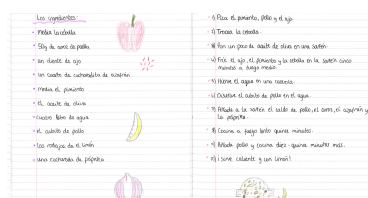 Los ingredientes:
media la cebolla
50g de arroz de paella
un diente de ajo
un cuarto de cucharadita de azafran
media el pimiento
el aceite de oliva
cuarto litro de agua
el cubito de pollo
las rodajas de el limón
una cucharada de páprika
1) Pica el pimiento, pollo y el ajo.
2) Trocea la cebolla.
3) Pon un poco de aceite de oliva en una sartén.
4) Fríe el ajo, el pimiento y la cebolla en la sartén cinco
minutos a fuego medio.
5) Hierve el agua en una cacerola.
6) Disolver el cubito de pollo en el agua.
7) Añada a la sartén el caldo de pollo, el arroz, el azafrán y
la páprika.
8) Cocina a fuego lento quince minutos.
9) Añade pollo y cocina diez - quince minutos más.
10) ¡Sirve caliente y con limón!